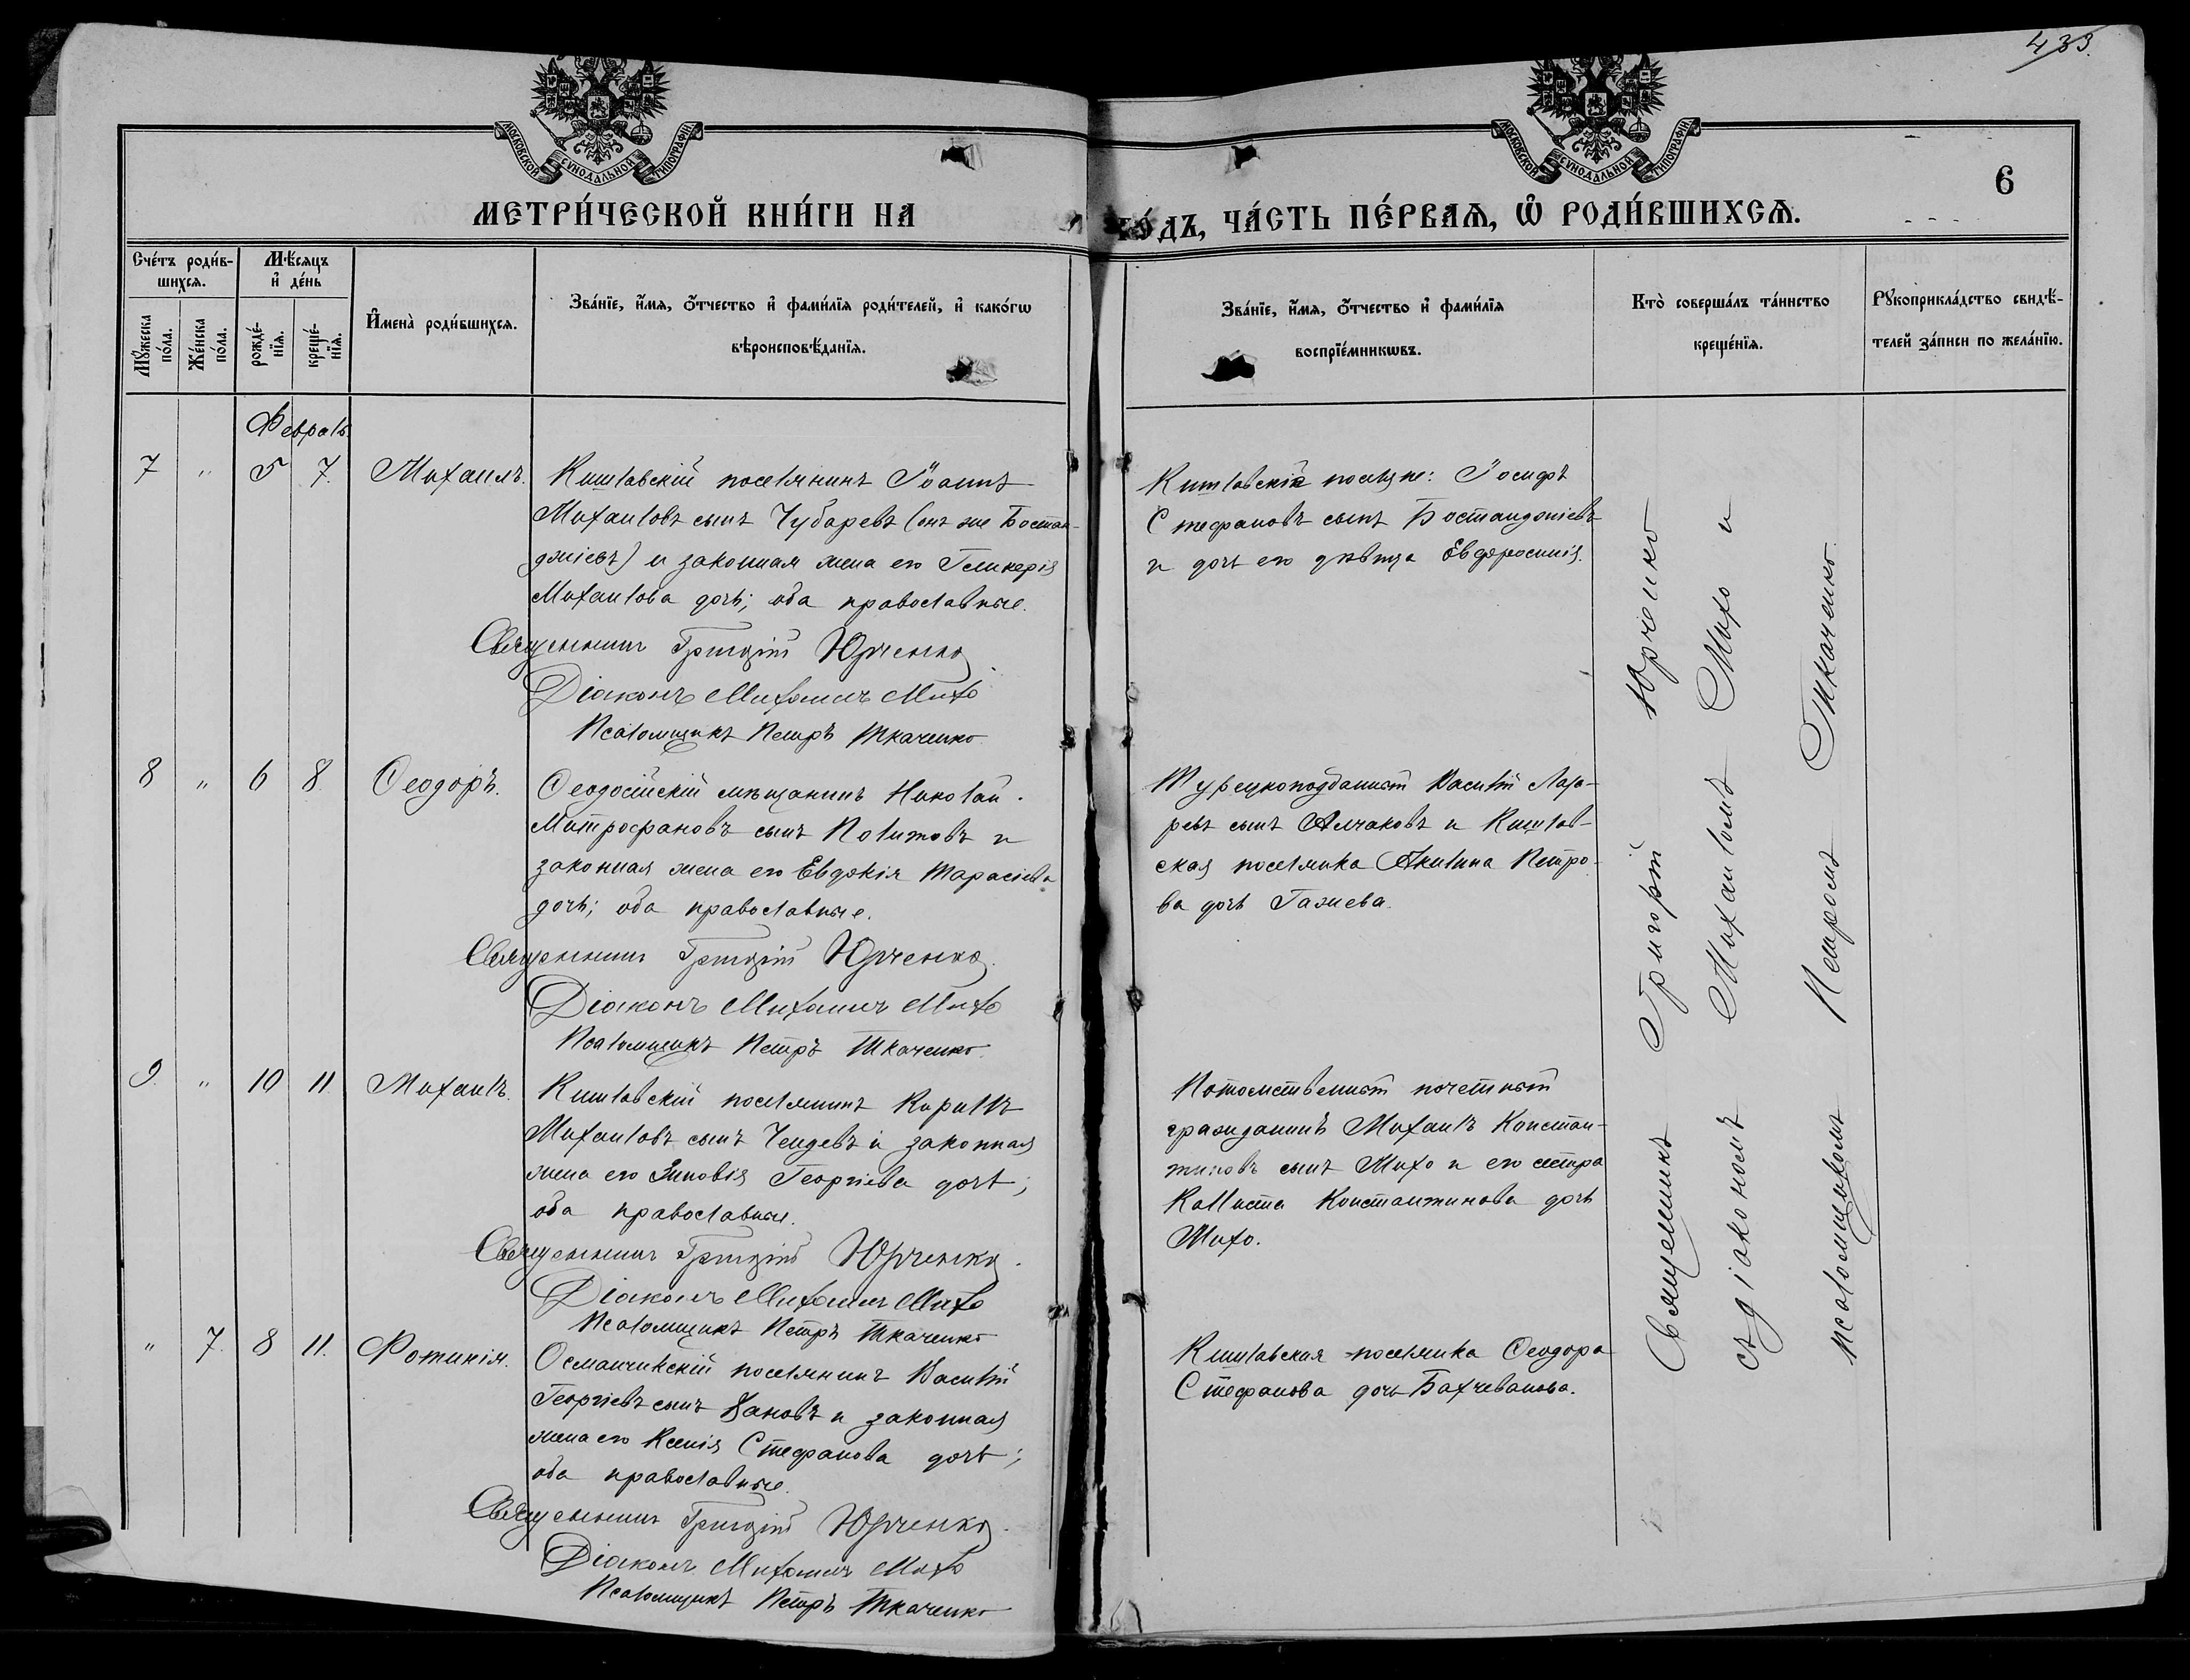 433.
МОСКОВСКОЙ СѴНОДАЛЬНОЙ ТИПОГРАФІИ
МОСКОВСКОЙ СѴНОДАЛЬНОЙ ТИПОГРАФІИ
6
МЕТРИ́ЧЕСКОЙ КНИ́ГИ НА
ГО́ДЪ, ЧА́СТЬ ПЕ́РВАѦ, Ѡ҆ РОДИ́ВШИХСѦ.
Сче́тъ роди́в-
шихсѧ.
Мꙋ́жеска по́ла.
Же́нска по́ла.
Мѣ́сѧцъ
и҆ де́нь
рожде́-
нїѧ.
креще́-
нїѧ.
И҆мена̀ роди́вшихсѧ.
Зва́нїе, и҆́мѧ, ѻ҆́тчество и҆ фами́лїѧ роди́телей, и҆ како́гѡ
вѣроисповѣ́данїѧ.
Зва́нїе, и҆́мѧ, ѻ҆́тчество и҆ фами́лїѧ
воспрїе́мникѡвъ.
Кто̀ соверша́лъ та́инство
креще́нїѧ.
Рꙋкоприкла́дство свидѣ́-
телей за́писи по жела́нїю.
Февраль
7 " 5 7. Михаилъ.
Кишлавскій поселянинъ Іоаннъ
Михаиловъ сынъ Чубаревъ (онъ же Бостан-
джіевъ) и законная жена его Гликерія
Михаилова дочь; оба православные.
Священникъ Григорій Юрченко
Діаконъ Михаилъ Михо
Псаломщикъ Петръ Ткаченко
Кишлавскіе поселяне: Іосифъ
Стефановъ сынъ Бостанджіевъ
и дочь его дѣвица Евфросинія.
8 " 6 8 Ѳеодоръ.
Ѳеодосійскій мѣщанинъ Николай
Митрофановъ сынъ Политовъ и
законная жена его Евдокія Тарасіева
дочь; оба православные.
Священникъ Григорій Юрченко.
Діаконъ Михаилъ Михо
Псаломщикъ Петръ Ткаченко.
Турецкоподданный Василій Лаза-
ревъ сынъ Алчаковъ и Кишлав-
ская поселянка Акилина Петро-
ва дочь Гажева.
9. " 10 11 Михаилъ.
Кишлавскій поселянинъ Кириллъ
Михаиловъ сынъ Чендевъ и законная
жена его Зиновія Георгіева дочь;
оба православные.
Священникъ Григорій Юрченко.
Діаконъ Михаилъ Михо
Псаломщикъ Петръ Ткаченко
Потомственный почетный
гражданинъ Михаилъ Констан-
тиновъ сынъ Михо и его сестра
Каллиста Константинова дочь
Михо.
" 7. 8 11. Фотинія.
Османчикскій поселянинъ Василій
Георгіевъ сынъ Зановъ и законная
жена его Ксенія Стефанова дочь;
оба православные.
Священникъ Григорій Юрченко.
Діаконъ Михаилъ Михо
Псаломщикъ Петръ Ткаченко
Кишлавская поселянка Ѳеодора
Стефанова дочь Бахчеванова.
Священникъ Григорій Юрченко
съ діакономъ Михаиломъ Михо и
псаломщикомъ Петромъ Ткаченко.